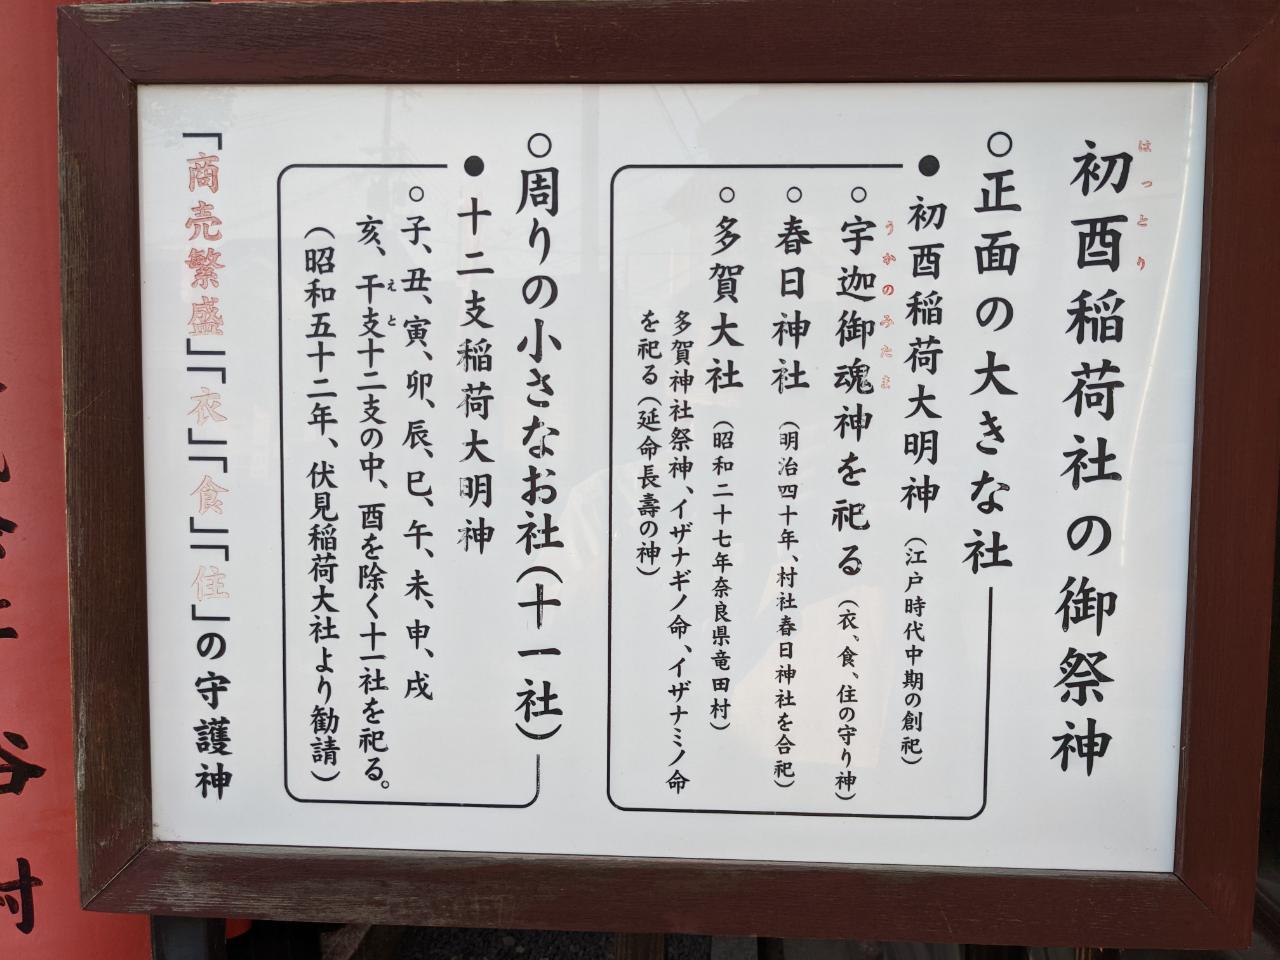 初酉稲荷社の御祭神
はっとり
○正面の大きな社
●初酉稲荷大明神（江戸時代中期の創祀）
○宇迦御魂神を祀る（衣、食、住の守り神）
うかのみたま
○春日神社（明治四十年、村社春日神社を合祀）
○多賀大社（昭和二十七年奈良県竜田村）
多賀神社祭神、イザナギノ命、イザナミノ命
を祀る（延命長壽の神）
○周りの小さなお社（十一社）
●十二支稲荷大明神
○子、丑、寅、卯、辰、巳、午、未、申、戌
亥、干支十二支の中、酉を除く十一社を祀る。
えと
（昭和五十二年、伏見稲荷大社より勧請）
「商売繁盛」「衣」「食」「住」の守護神